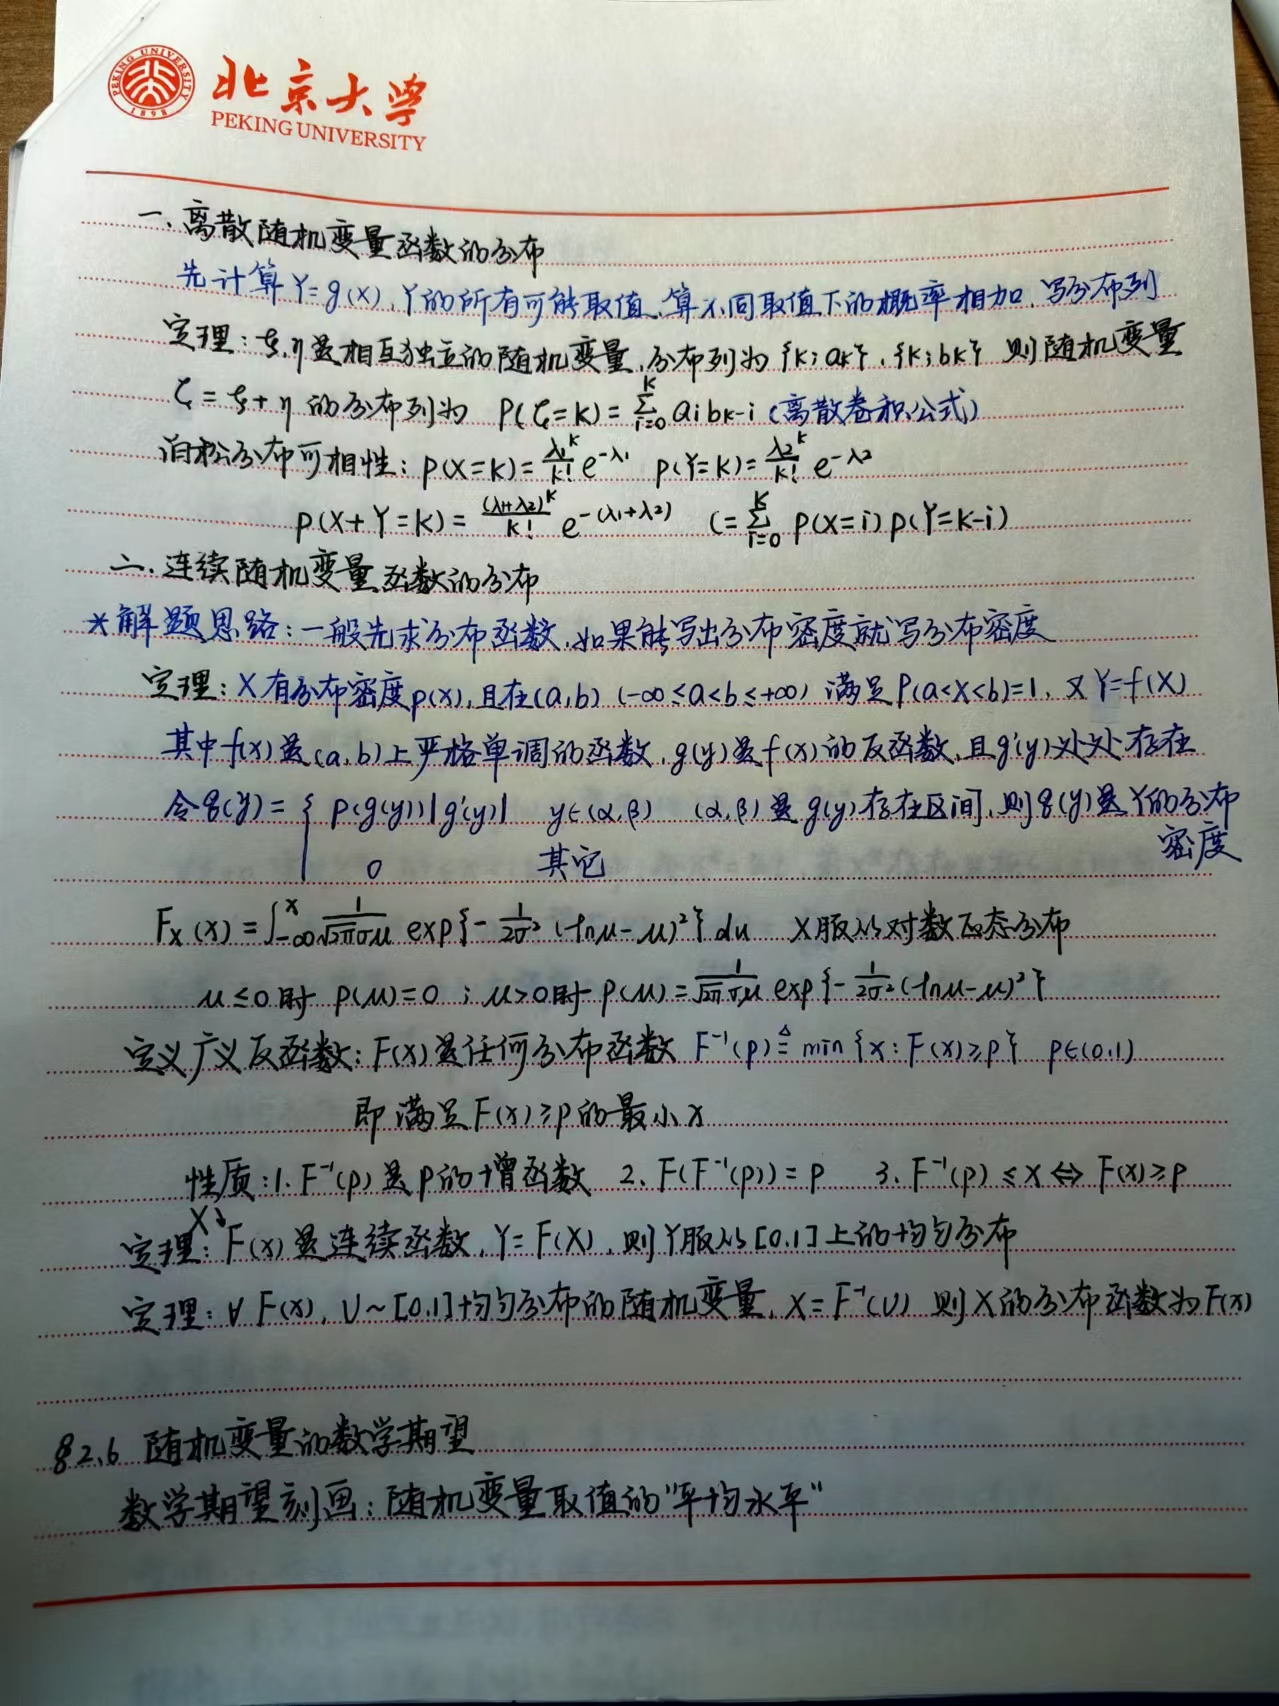 北京大学
PEKING UNIVERSITY
PEKING UNIVERSITY
1898
一、离散随机变量函数的分布
先计算Y=g(x),Y的所有可能取值、算不同取值下的概率相加,写分布列
定理:ξ,η是相互独立的随机变量,分布列为{k;ak},{k;bk} 则随机变量
ζ=ξ+η 的分布列为 P(ζ=k)=∑_{i=0}^{k} aibk-i (离散卷积公式)
泊松分布可相性:P(X=k)=λ1^k/k! e^{-λ1} P(Y=k)=λ2^k/k! e^{-λ2}
P(X+Y=k)=(λ1+λ2)^k/k! e^{-(λ1+λ2)} (=∑_{i=0}^{k} P(X=i)P(Y=k-i)
二.连续随机变量函数的分布
*解题思路:一般先求分布函数,如果能写出分布密度就写分布密度
定理:X有分布密度p(x),且在(a,b) (-∞≤a<b≤+∞) 满足P(a<X<b)=1,又Y=f(X)
其中f(x)是(a,b)上严格单调的函数,g(y)是f(x)的反函数,且g'(y)处处存在
令q(y)={ p(g(y))|g'(y)| y∈(α,β) (α,β)是g(y)存在区间,则q(y)是Y的分布密度
0 其它
F_X(x)=∫_{-∞}^{x} 1/(√2πσu) exp{-1/2σ²(lnu-μ)²}du X服从对数正态分布
u≤0时 p(u)=0;u>0时 p(u)=1/(√2πσu) exp{-1/2σ²(lnu-μ)²}
定义广义反函数:F(x)是任何分布函数 F⁻¹(p)≜min{x:F(x)≥p} p∈(0,1)
即满足F(x)≥p的最小x
性质:1.F⁻¹(p)是p的增函数 2.F(F⁻¹(p))=p 3.F⁻¹(p)≤x⇔F(x)≥p
X↘
定理:F(x)是连续函数,Y=F(X),则Y服从[0,1]上的均匀分布
定理:∀F(x),U~[0,1]均匀分布的随机变量,X=F⁻¹(U) 则X的分布函数为F(x)
§2.6 随机变量的数学期望
数学期望刻画:随机变量取值的“平均水平”